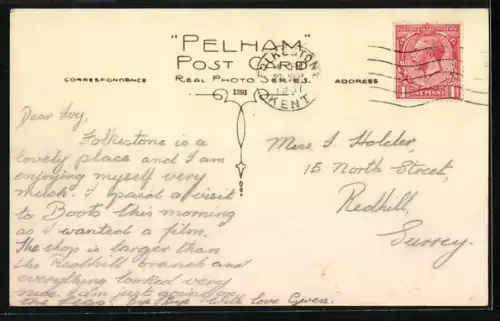 "PELHAM"
POST CARD
REAL PHOTO SERIES.
CORRESPONDENCE
ADDRESS
FOLKESTONE
KENT
ONE PENNY
Dear Ivy,
Folkestone is a
lovely place and I am
enjoying myself very
much. I paid a visit
to Boots this morning
as I wanted a film.
The shop is larger than
the Redhill branch and
everything looked very
nice. I am just going on
the Leas. With love Gwen.
Miss I Holder,
15 North Street,
Redhill,
Surrey.